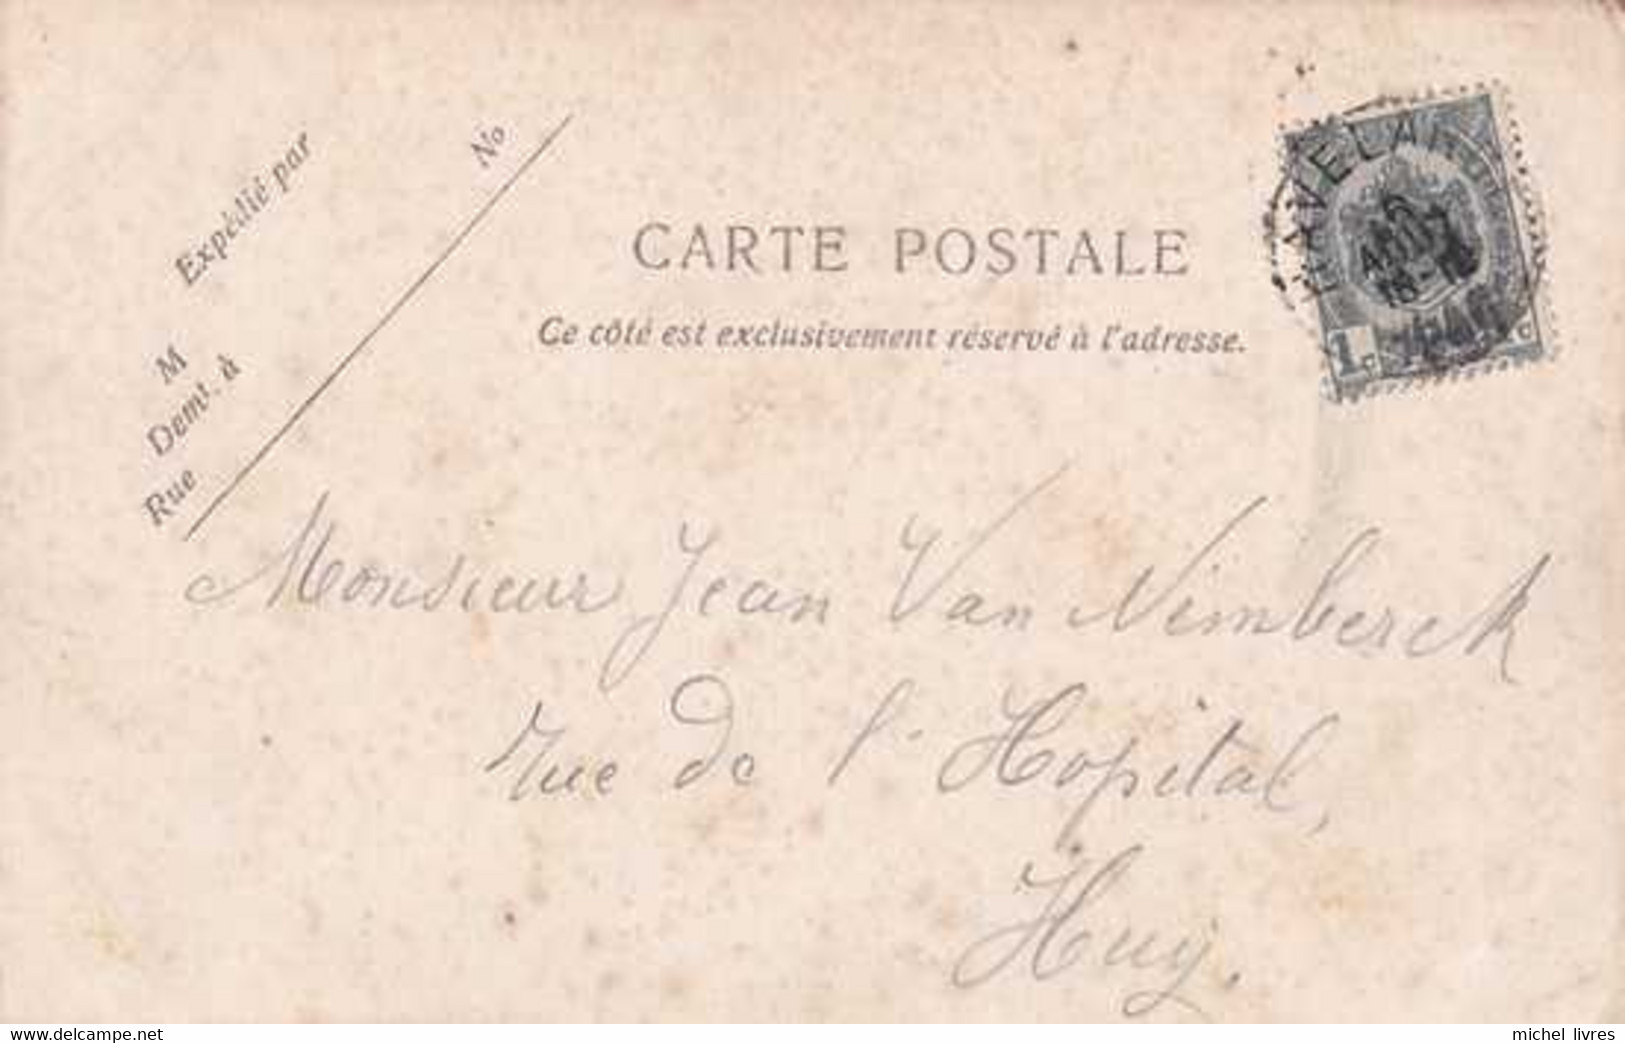 Expédié par
M
Demt. à
Rue
No
CARTE POSTALE
Ce côté est exclusivement réservé à l'adresse.
1 c
c
Monsieur Jean Van Nimberck
rue de l'Hopital,
Huy.
www.delcampe.net
michel_livres